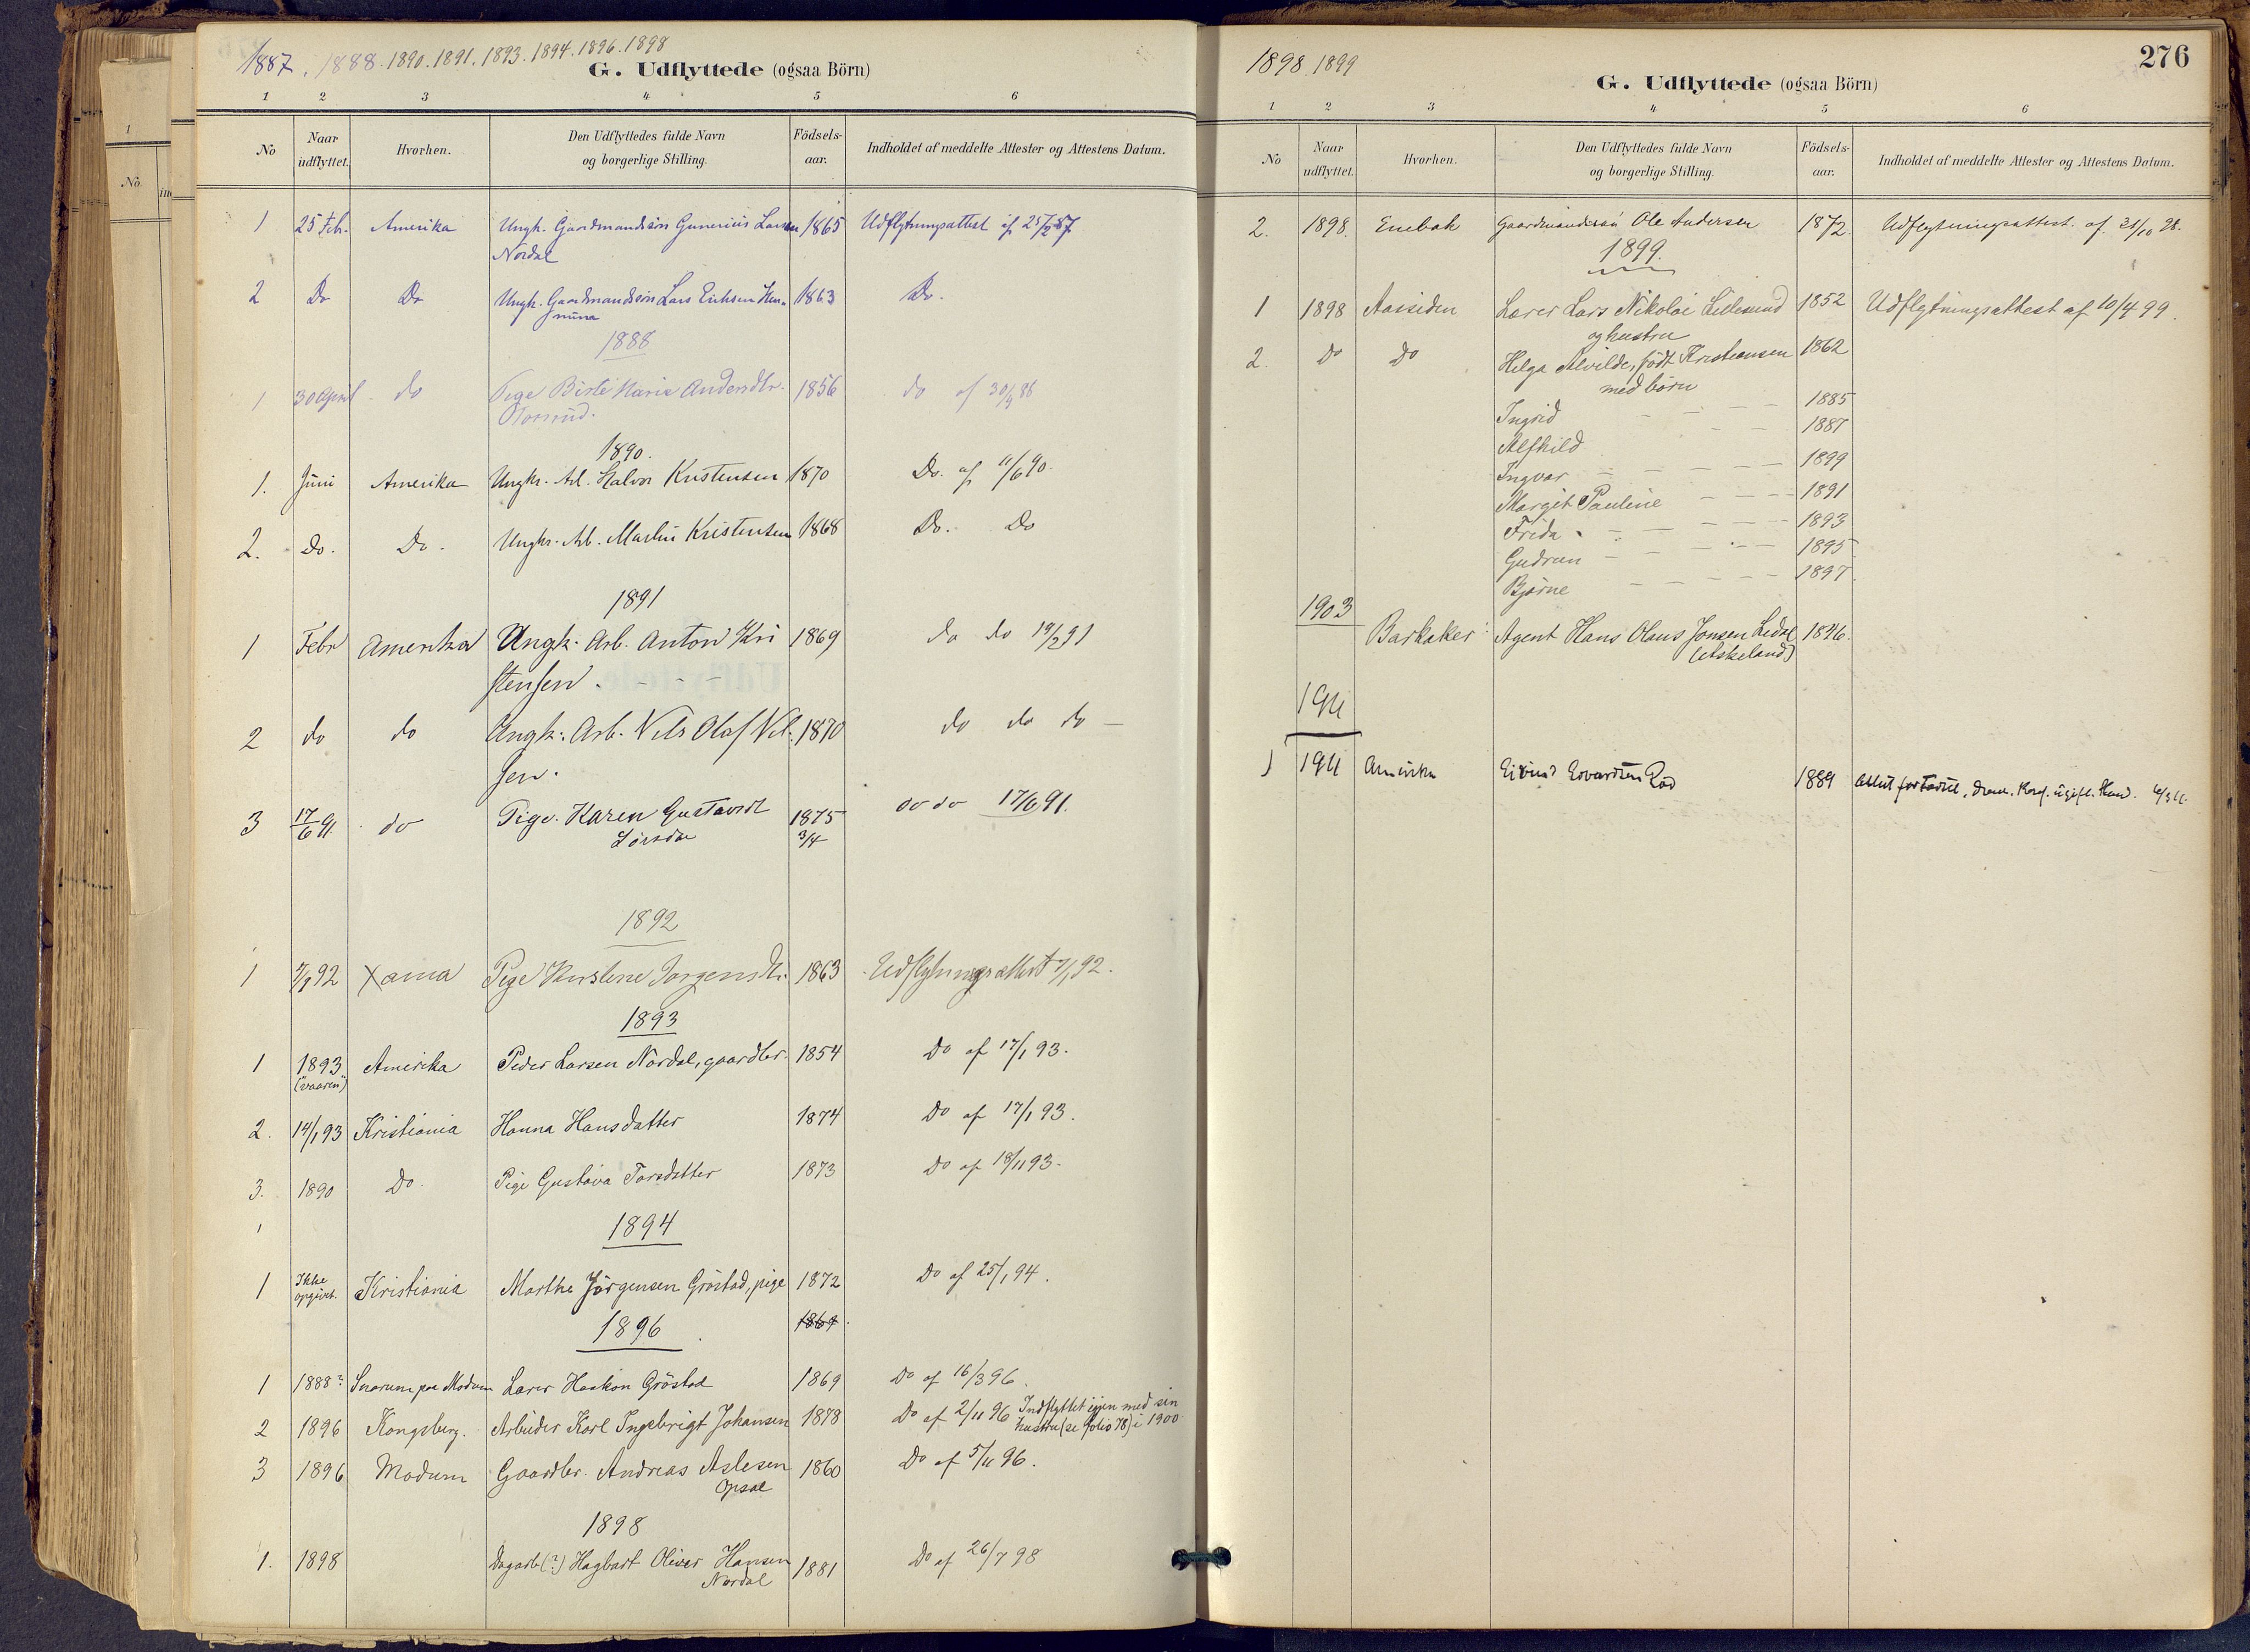 1887. 1888. 1890. 1891. 1893. 1894. 1896. 1898
G. Udflyttede (ogsaa Börn)
1 2 3 4 5 6
No Naar udflyttet. Hvorhen. Den Udflyttedes fulde Navn og borgerlige Stilling. Födsels-aar. Indholdet af meddelte Attester og Attestens Datum.
1 25 Feb. Amerika Ungk. Gaardmandsön Gunerius Larsen 1865 Udflytningsattest af 25/2 87
Nordal
2 Do Do Ungk. Gaardmandsön Lars Eriksen 1863 Do.
1888
1 30 April do Pige Marie Andersdtr. 1856 do af 30/4 88
1890.
1. Juni Amerika Ungkr. Arb. Halvor Kristensen 1870 Do. af 11/6 90.
2. Do. Do. Ungkr. Arb. Martin Kristensen 1868 Do. Do
1891
1 Febr Amerika Ungk. Arb. Anton Kri 1869 do do 19/2 91
stensen.
2 do do Ungk. Arb. Nils Olaf Nil- 1870 do do do
sen.
3 17/6 91. do Pige. Karen Gustavsdt 1875 do do 17/6 91.
3/4
1892
1 7/1 92 Pige Kirstine Jörgensdtr. 1863 Udflytningsattest 7/1 92.
1893
1 1893 Amerika Peder Larsen Nordal, gaardbr. 1854 Do af 17/1 93.
("vaaren")
2. 14/1 93 Kristiania Hanna Hansdatter 1874 Do af 17/1 93.
3. 1890 Do. Pige Gustava Torsdatter 1873 Do af 18/11 93.
1
1894
1 Ikke opgivet. Kristiania Marthe Jörgensen Gröstad, pige 1872 Do af 25/1 94.
1896 1869
1 1888? Snarum paa Modum Lærer Haakon Gröstad 1869 Do af 16/3 96.
2 1896 Kongsberg. Arbeider Karl Ingebrigt Johansen 1878 Do af 2/11 96 Indflyttet igjen med sin
hustru (se folio 78) i 1900
3 1896 Modum Gaardbr. Andreas Aslesen 1860 Do af 5/11 96.
Opsal
1898
1. 1898 Dagarb (?) Hagbart Oliver Hansen 1881 Do af 26/7 98
Nordal
1898. 1899
276
G. Udflyttede (ogsaa Börn)
1 2 3 4 5 6
No Naar udflyttet. Hvorhen. Den Udflyttedes fulde Navn og borgerlige Stilling. Födsels-aar. Indholdet af meddelte Attester og Attestens Datum.
2. 1898. Enebak Gaardmandssön Ole Andersen 1872. Udflytningsattest. af. 31/10 98.
1899.
1 1898 Aassiden Lærer Lars Nikolai Lillesund 1852 Udflytningsattest af 10/4 99.
og hustru
2. Do Do Helga Alvilde, födt Kristiansen 1862
med börn
Ingrid 1885
Alfhild 1887
Ingvar 1899
Margit Pauline 1891
Frida 1893
Gudrun 1895
Bjarne 1897
1903
Barkaker Agent Hans Olaus Jonsen Lidal 1846.
(Askeland)
1911
1 1911 Amerika Eivind Edvardsen Röd 1889